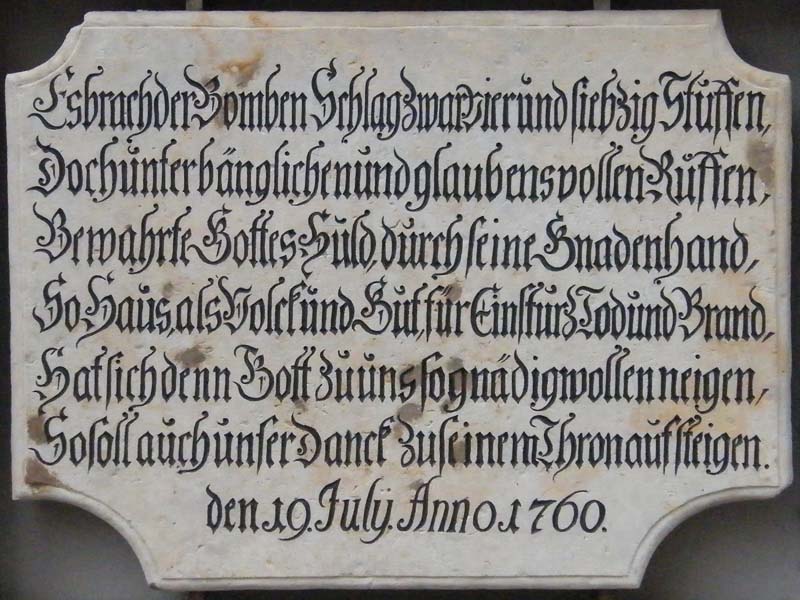 Es brach der Bomben Schlag zwar vier und siebzig Stuffen,
Doch unter bänglichen und glaubensvollen Ruffen,
Bewahrte Gottes Huld, durch seine Gnadenhand,
So Haus, als Volck und Gut, für Einsturz Tod und Brand,
Hat sich denn Gott zu uns so gnädig wollen neigen,
So soll auch unser Danck zu seinem Thron aufsteigen.
den 19. July. Anno. 1760.